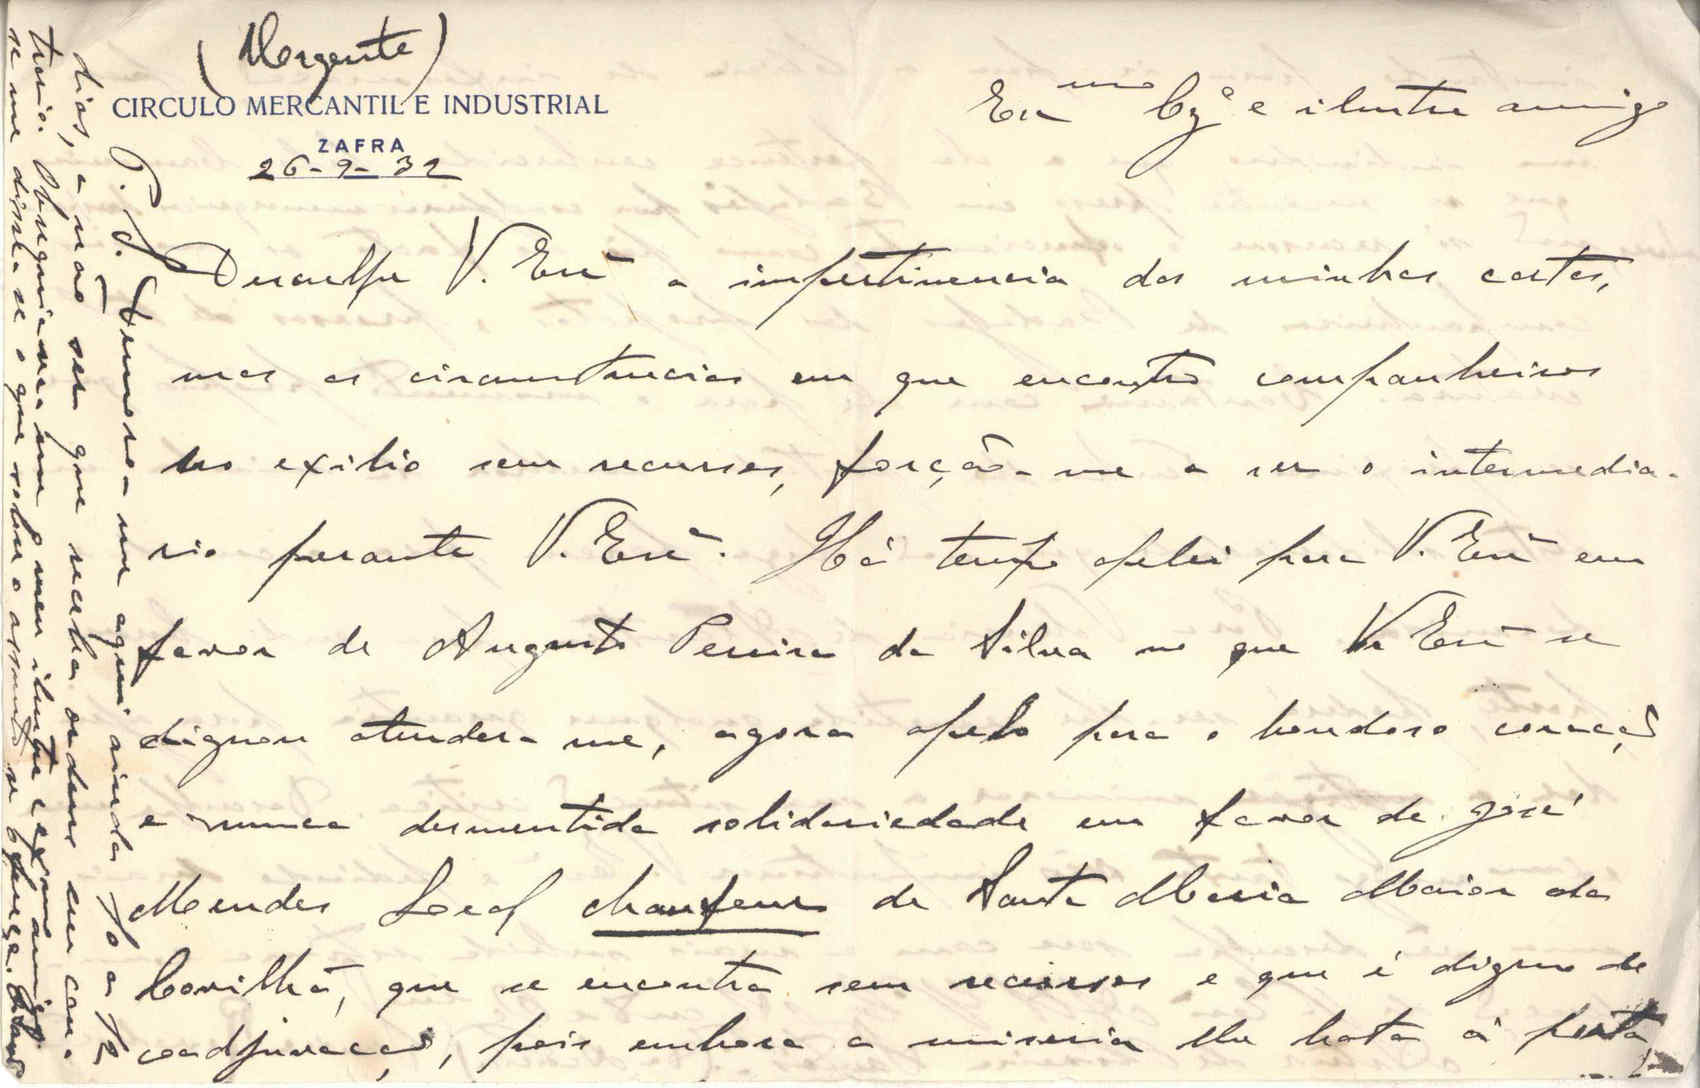 (Urgente)
CIRCULO MERCANTIL E INDUSTRIAL
ZAFRA
26-9-32
Exmo e ilustre amigo
Desculpe V. Exª a impertinencia das minhas cartas,
mas as circunstancias em que encontro companheiros
no exilio sem recursos, forção-me a ser o intermedia-
rio perante V. Exª. Há tempo apelei para V. Exª em
favor de Augusto Pereira da Silva no que V. Exª se
dignou atender-me, agora apelo para o bondoso coração
e nunca desmentida solidariedade em favor de José
Mendes Leal chaufeur de Santa Maria Maior da
Covilhã, que se encontra sem recursos e que é digno de
coadjuvação, pois embora a miseria lhe bata à porta
P. S. Demoro-me aqui ainda 10 a 12
dias, a não ser que receba ordens em con-
trario. Obsequiava-me o meu ilustre e exmo amigo
se me dissesse o que sobre o assunto se